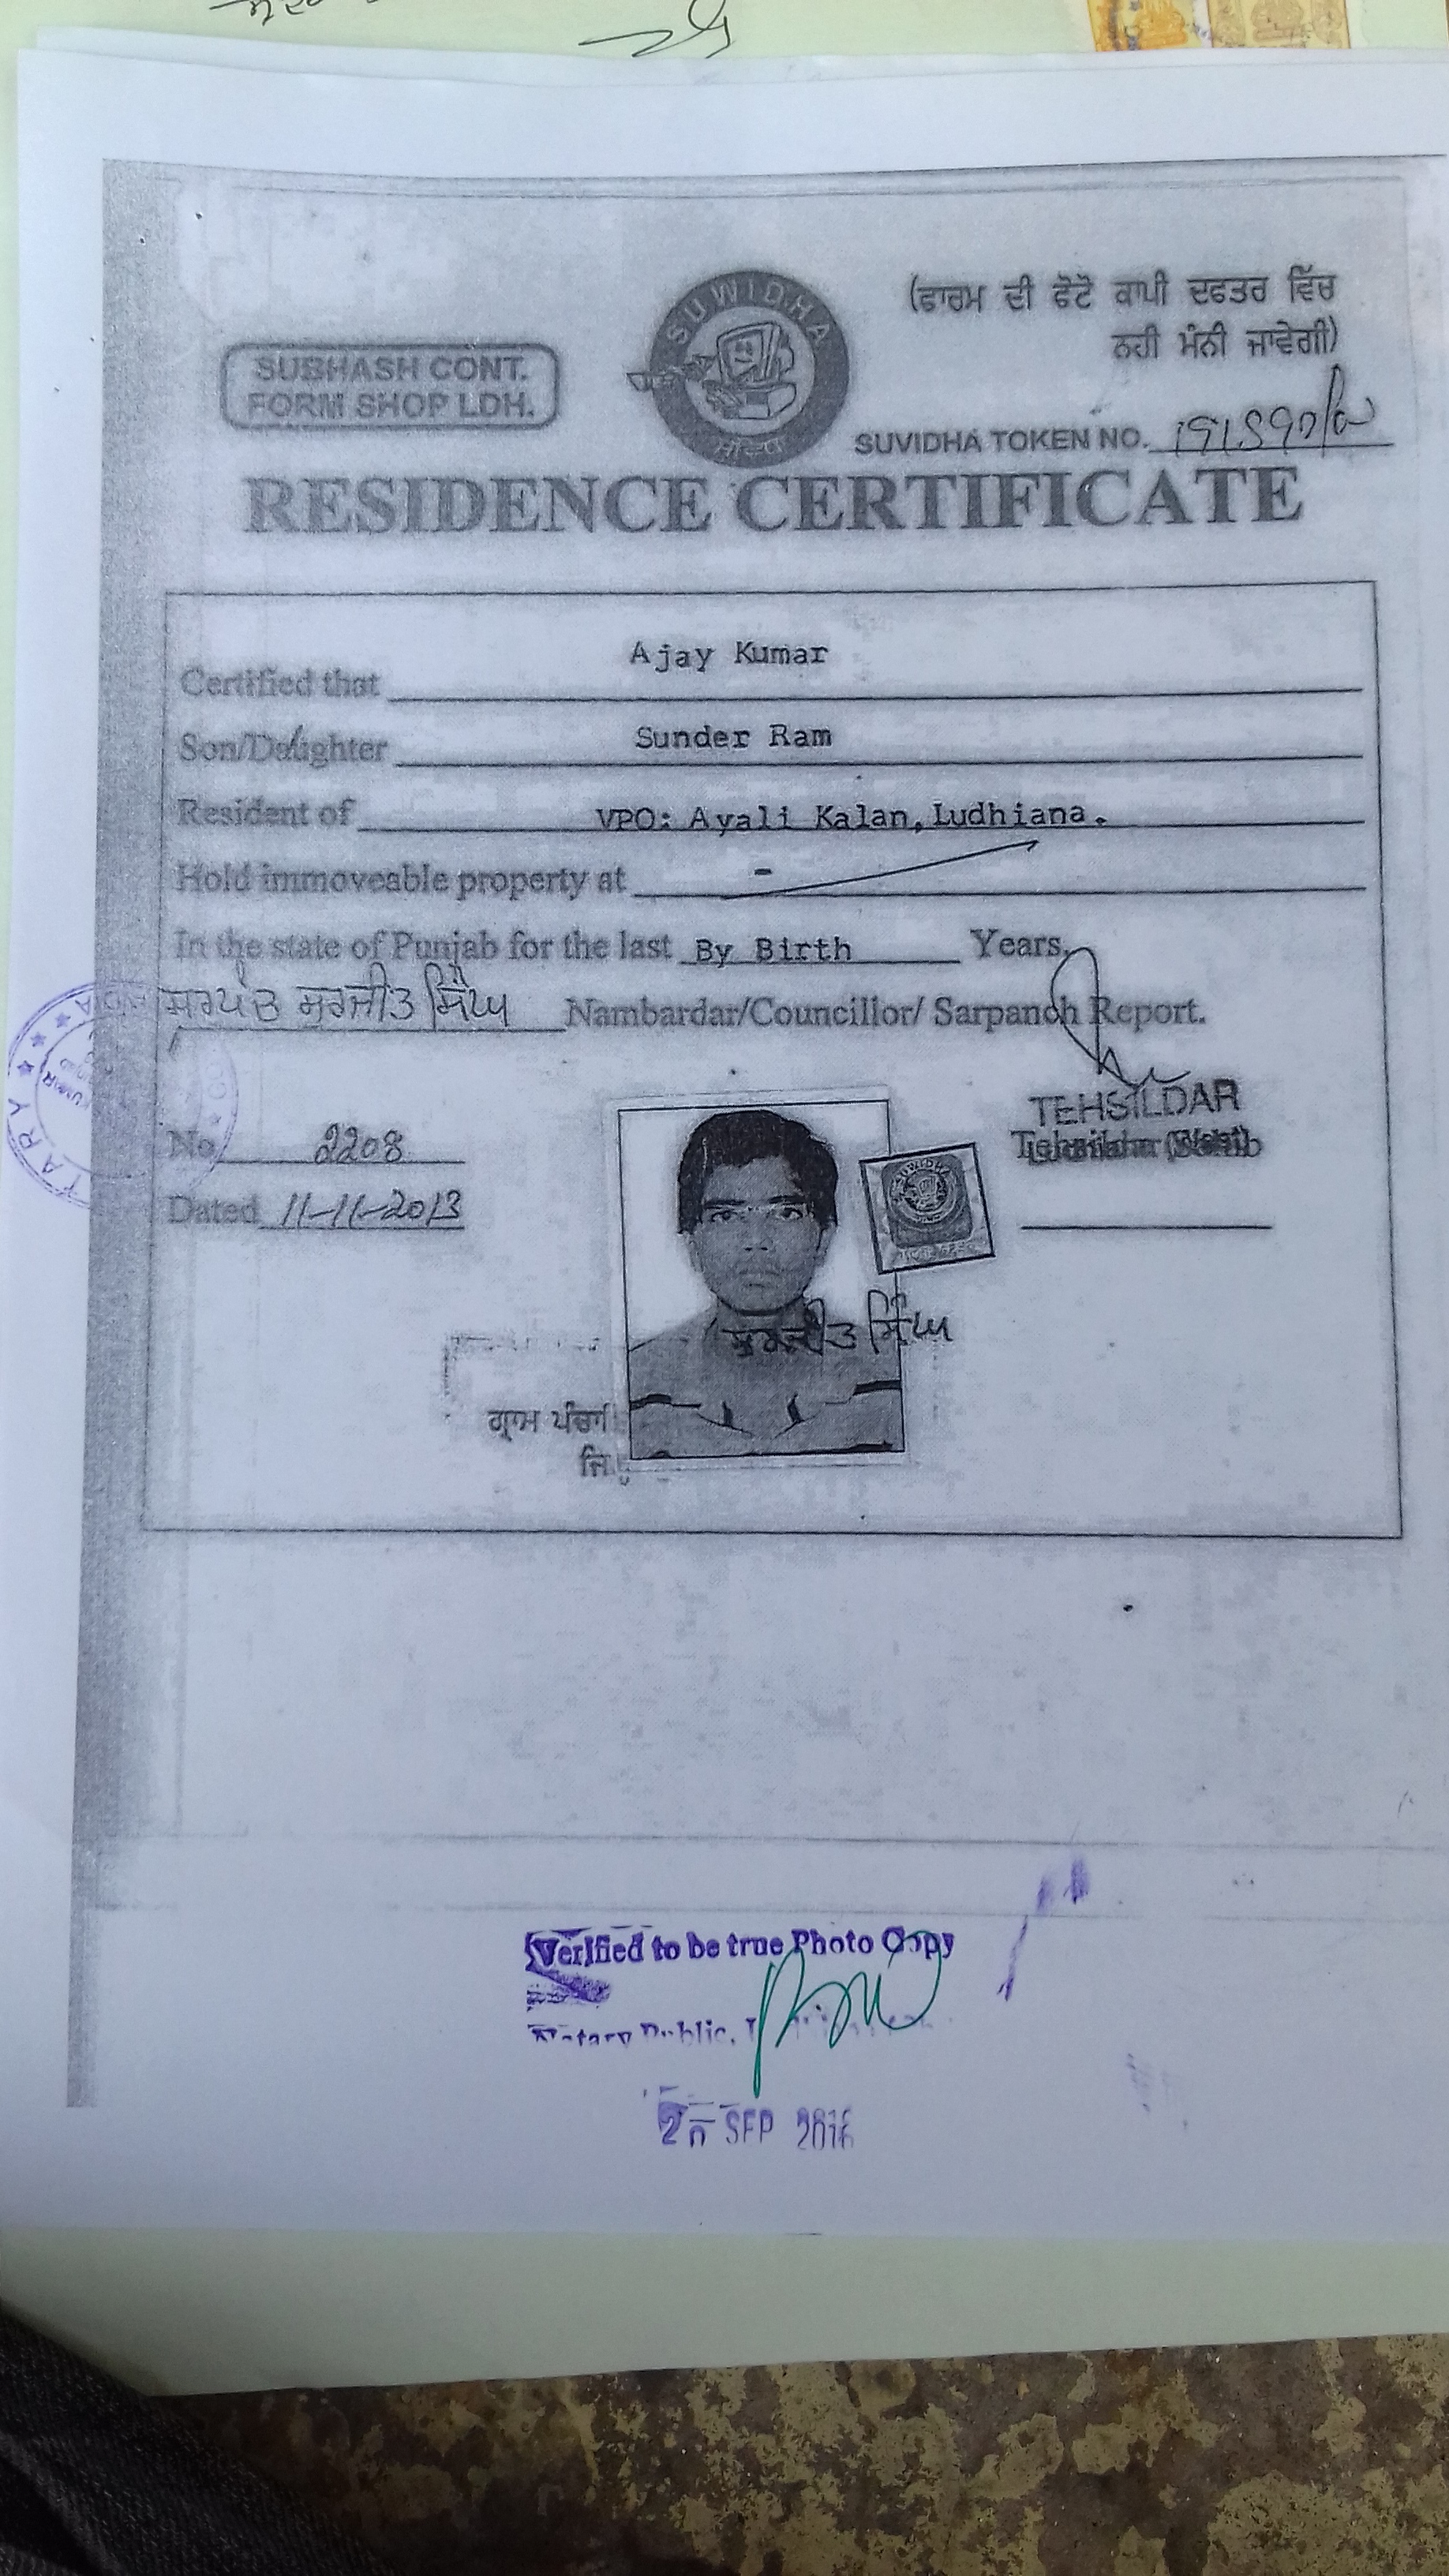 (ਫਾਰਮ ਦੀ ਛੋਟੇ ਕਾਪੀ ਦਫਤਰ ਵਿੱਚ
ਨਹੀ ਮੰਨੀ ਜਾਵੇਗੀ)
SUBHASH CONT.
FORM SHOP LDH.
SUWIDHA
SUVIDHA TOKEN NO.
RESIDENCE CERTIFICATE
Certified that Ajay Kumar
Son/Daughter Sunder Ram
Resident of VPO: Ayali Kalan,Ludhiana.
Hold immoveable property at -
In the state of Punjab for the last By Birth Years,
ਸਰਪੰਚ ਸੁਰਜੀਤ ਸਿੰਘ Nambardar/Councillor/ Sarpanch Report.
No 2208
Dated 11-11-2013
TEHSILDAR
ਗ੍ਰਾਮ ਪੰਚਾ
ਸਿੰਘ
Verified to be true Photo Copy
SEP